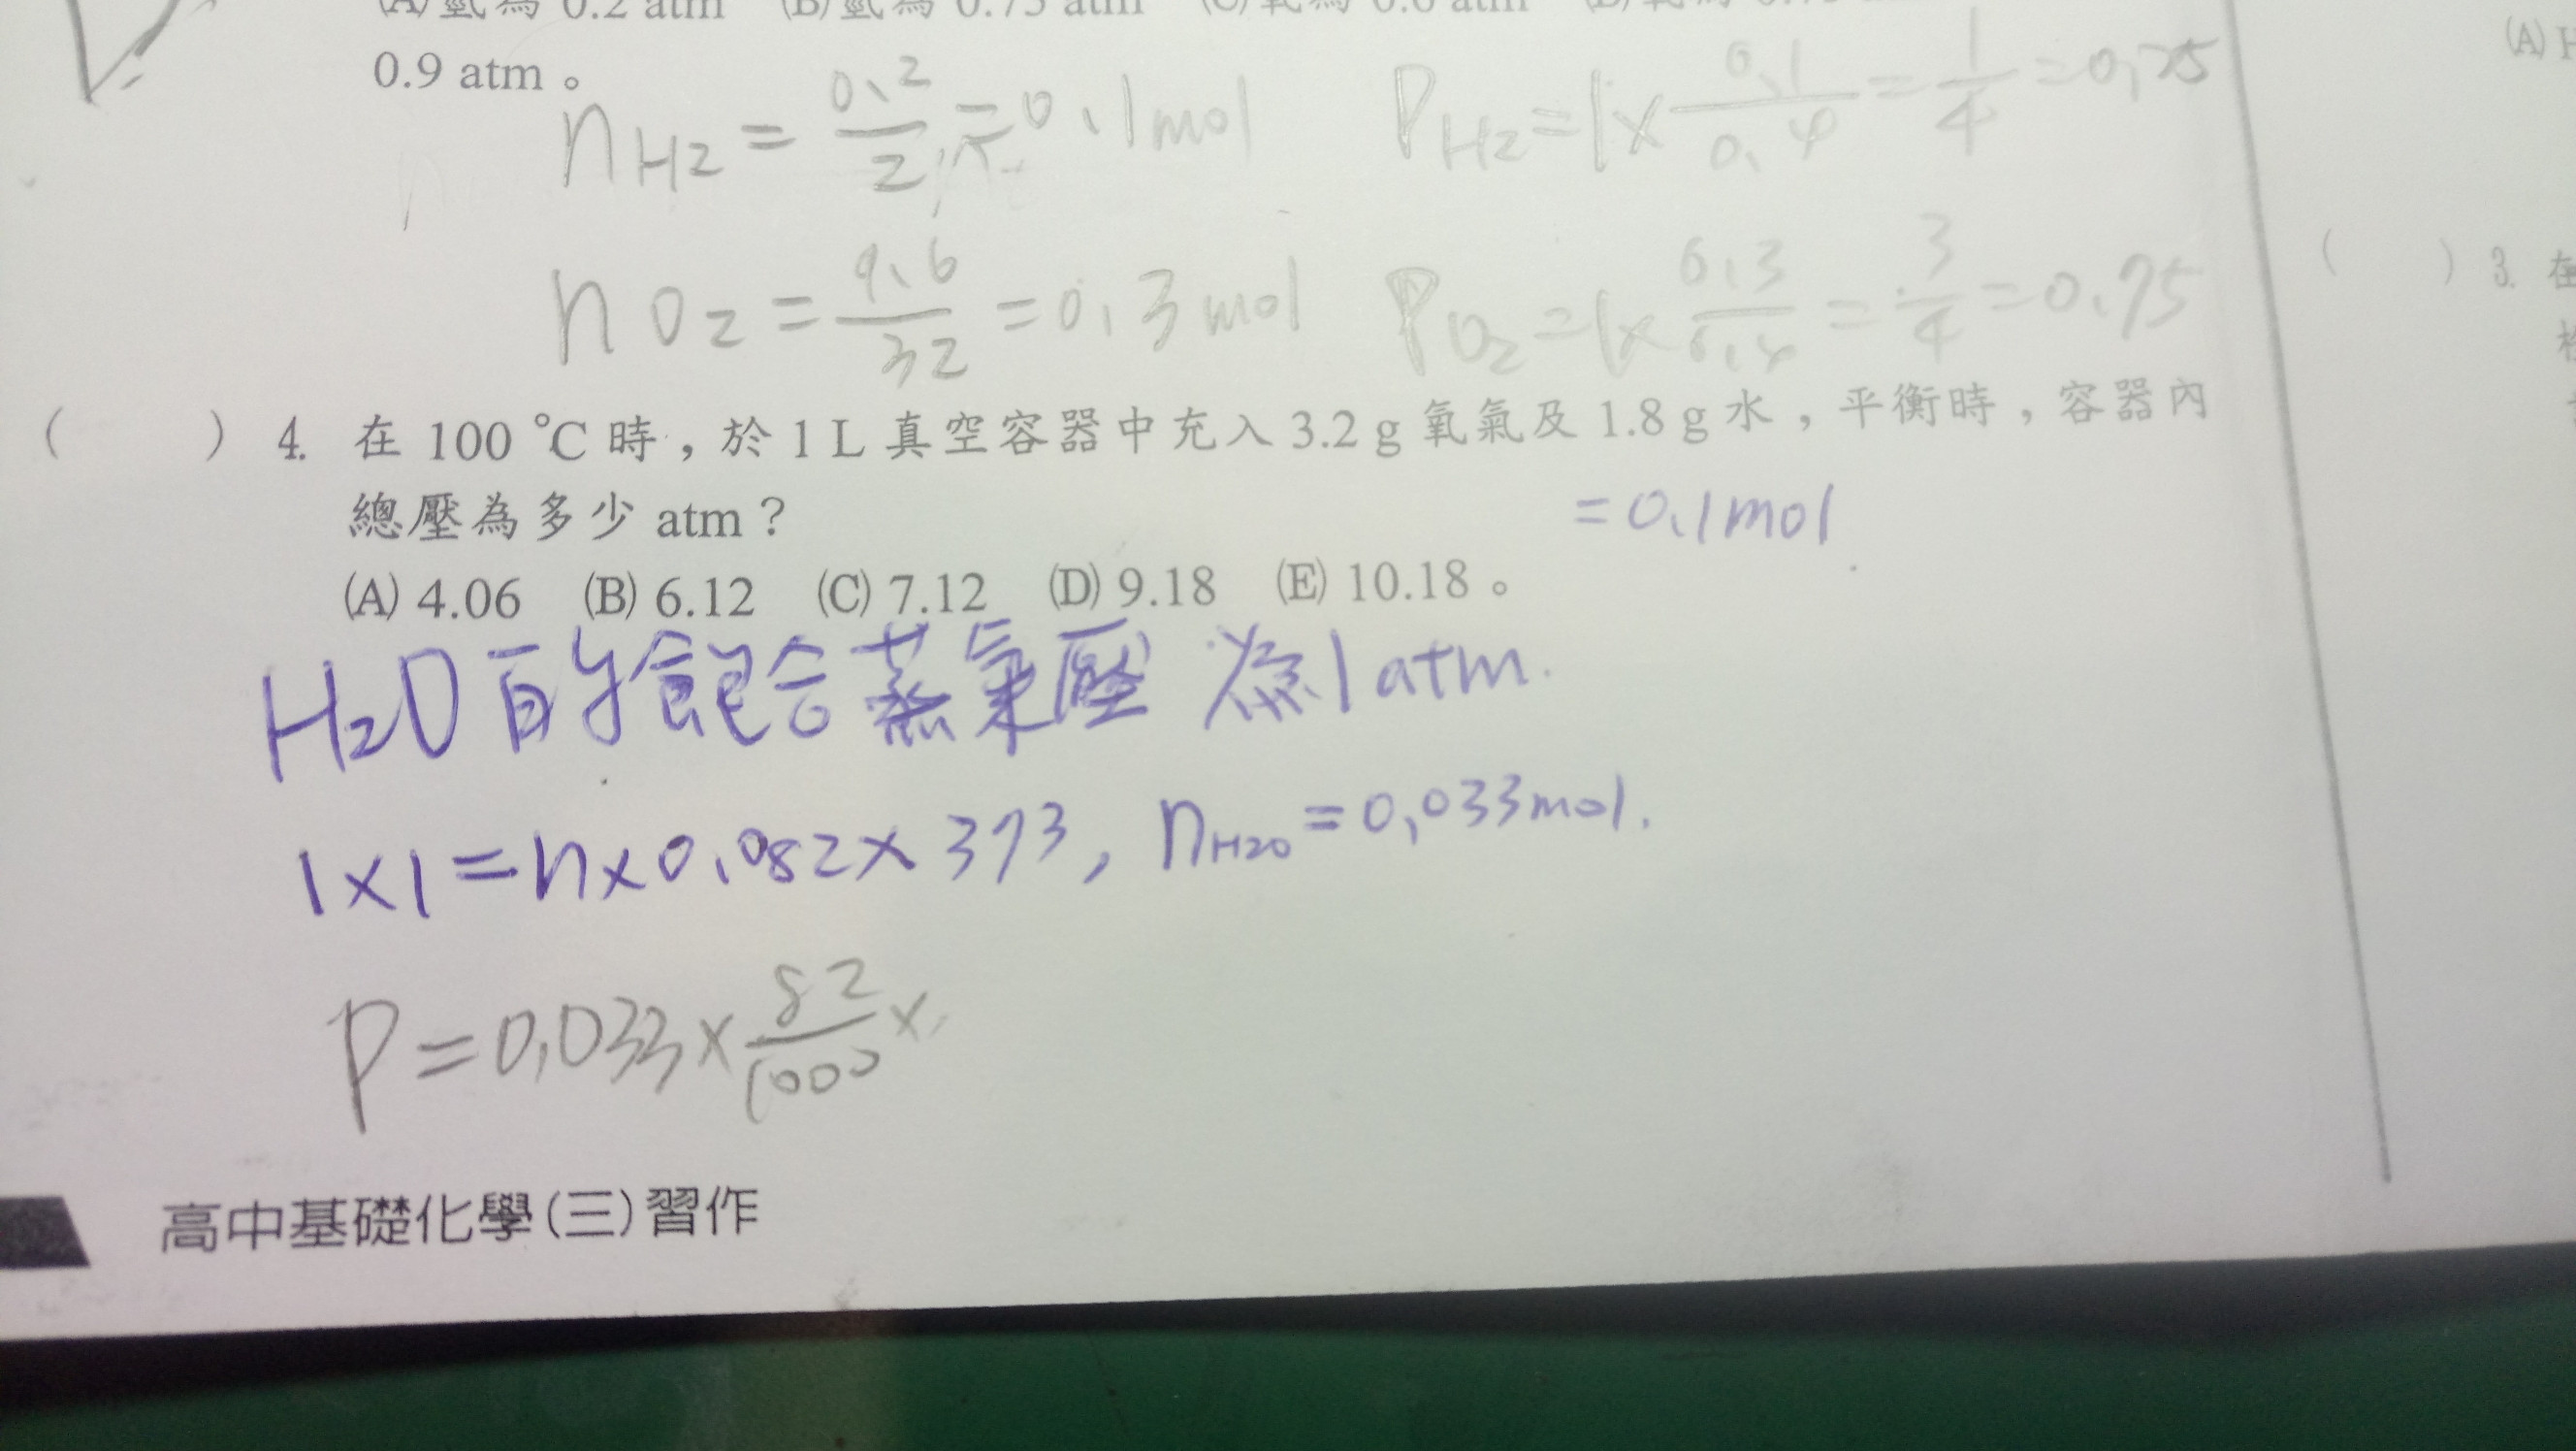 0.9 atm。
nH2 = 0.2/2 = 0.1mol PH2 = 1 × 0.1/0.4 = 1/4 = 0.25
nO2 = 9.6/32 = 0.3 mol PO2 = 1 × 0.3/0.4 = 3/4 = 0.75
( ) 4. 在 100 ℃ 時，於 1 L 真空容器中充入 3.2 g 氧氣及 1.8 g 水，平衡時，容器內
總壓為多少 atm？
= 0.1mol
(A) 4.06 (B) 6.12 (C) 7.12 (D) 9.18 (E) 10.18。
H2O 的飽合蒸氣壓 為 1 atm.
1×1 = n×0.082×373, nH2O = 0.033mol.
P = 0.033 × 82/1000 ×
高中基礎化學(三)習作
(A) H
( ) 3. 在